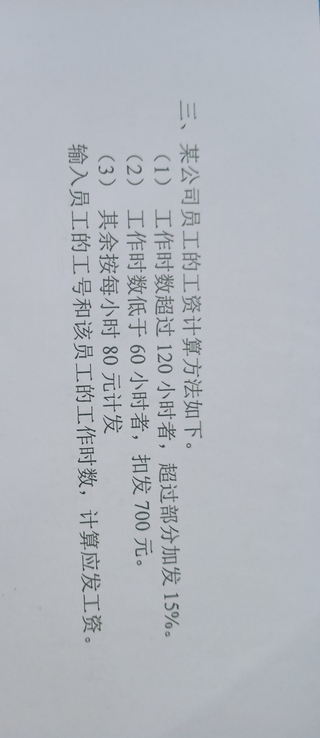 三、某公司员工的工资计算方法如下。
（1） 工作时数超过 120 小时者，超过部分加发 15%。
（2） 工作时数低于 60 小时者，扣发 700 元。
（3） 其余按每小时 80 元计发
输入员工的工号和该员工的工作时数，计算应发工资。